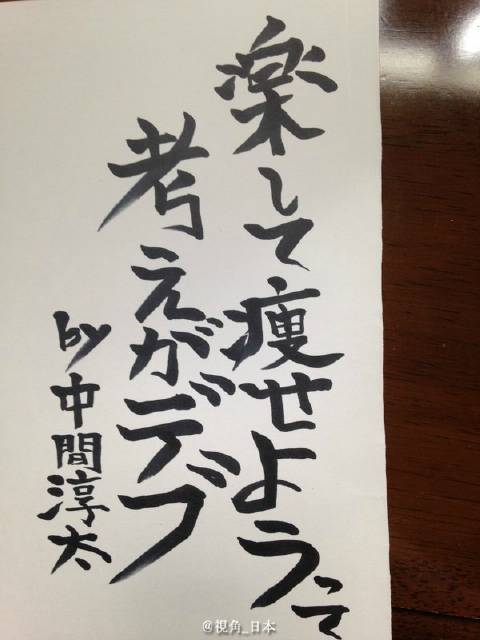 楽して痩せようって
考えがデブ
by中間淳太
@視角_日本